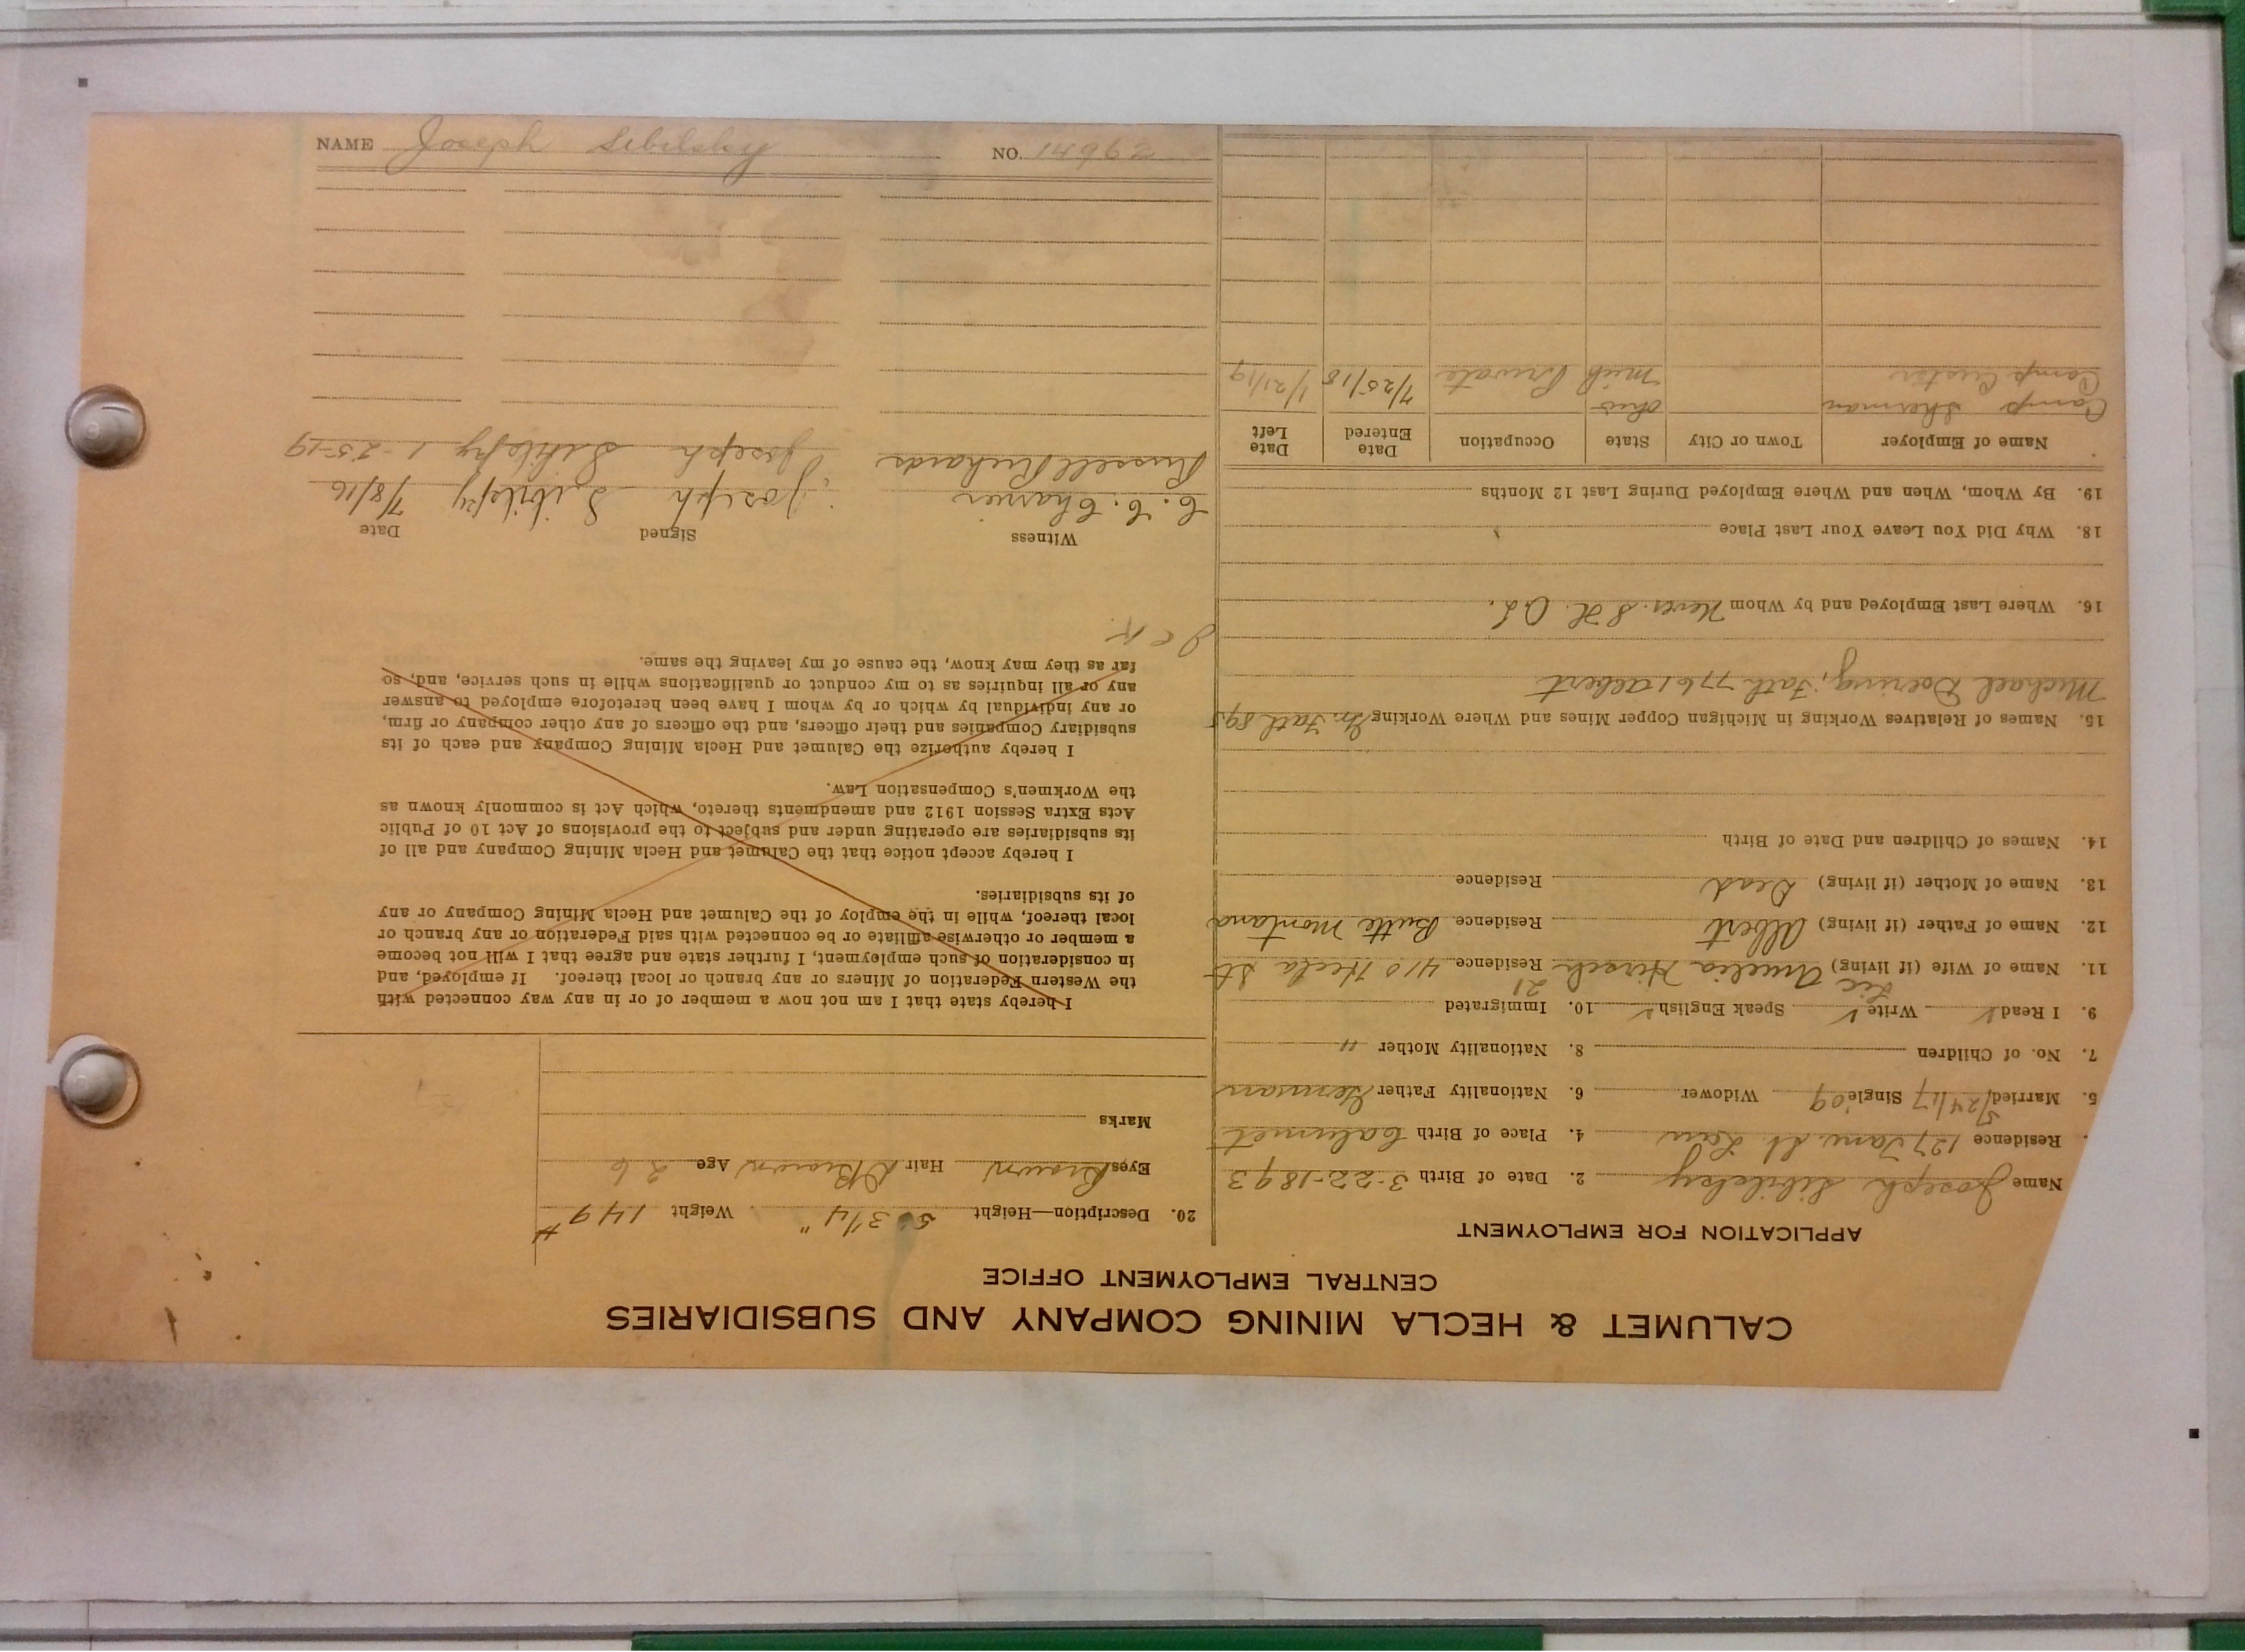 CALUMET & HECLA MINING COMPANY AND SUBSIDIARIES
CENTRAL EMPLOYMENT OFFICE
APPLICATION FOR EMPLOYMENT
Name Joseph Sibilsky 2. Date of Birth 3-22-1893
Residence 127 St. 4. Place of Birth Calumet
5. Married 5/24/17 Single '09 Widower 6. Nationality Father German
7. No. of Children 8. Nationality Mother "
9. I Read ✓ Write ✓ Speak English ✓ 10. Immigrated
21
11. Name of Wife (if living) Amelia Hirsch Residence 410 Hecla St
12. Name of Father (if living) Albert Residence Butte Montana
13. Name of Mother (if living) Dead Residence
14. Names of Children and Date of Birth
15. Names of Relatives Working in Michigan Copper Mines and Where Working
Michael Doering, 7761 Albert
16. Where Last Employed and by Whom Never
18. Why Did You Leave Your Last Place
19. By Whom, When and Where Employed During Last 12 Months
Name of Employer Town or City State Occupation Date Entered Date Left
Camp Sherman Ohio
Camp Custer Mich Private 7/25/18 1/21/19
20. Description—Height 5' 3 1/4" Weight 149 #
Eyes Brown Hair D Brown Age 26
Marks
I hereby state that I am not now a member of or in any way connected with
the Western Federation of Miners or any branch or local thereof. If employed, and
in consideration of such employment, I further state and agree that I will not become
a member or otherwise affiliate or be connected with said Federation or any branch or
local thereof, while in the employ of the Calumet and Hecla Mining Company or any
of its subsidiaries.
I hereby accept notice that the Calumet and Hecla Mining Company and all of
its subsidiaries are operating under and subject to the provisions of Act 10 of Public
Acts Extra Session 1912 and amendments thereto, which Act is commonly known as
the Workmen's Compensation Law.
I hereby authorize the Calumet and Hecla Mining Company and each of its
subsidiary Companies and their officers, and the officers of any other company or firm,
or any individual by which or by whom I have been heretofore employed to answer
any or all inquiries as to my conduct or qualifications while in such service, and, so
far as they may know, the cause of my leaving the same.
Witness Signed Date
Joseph Sibilsky 7/8/16
Russell Richards Joseph Sibilsky 1-25-19
NAME Joseph Sibilsky NO. 14962